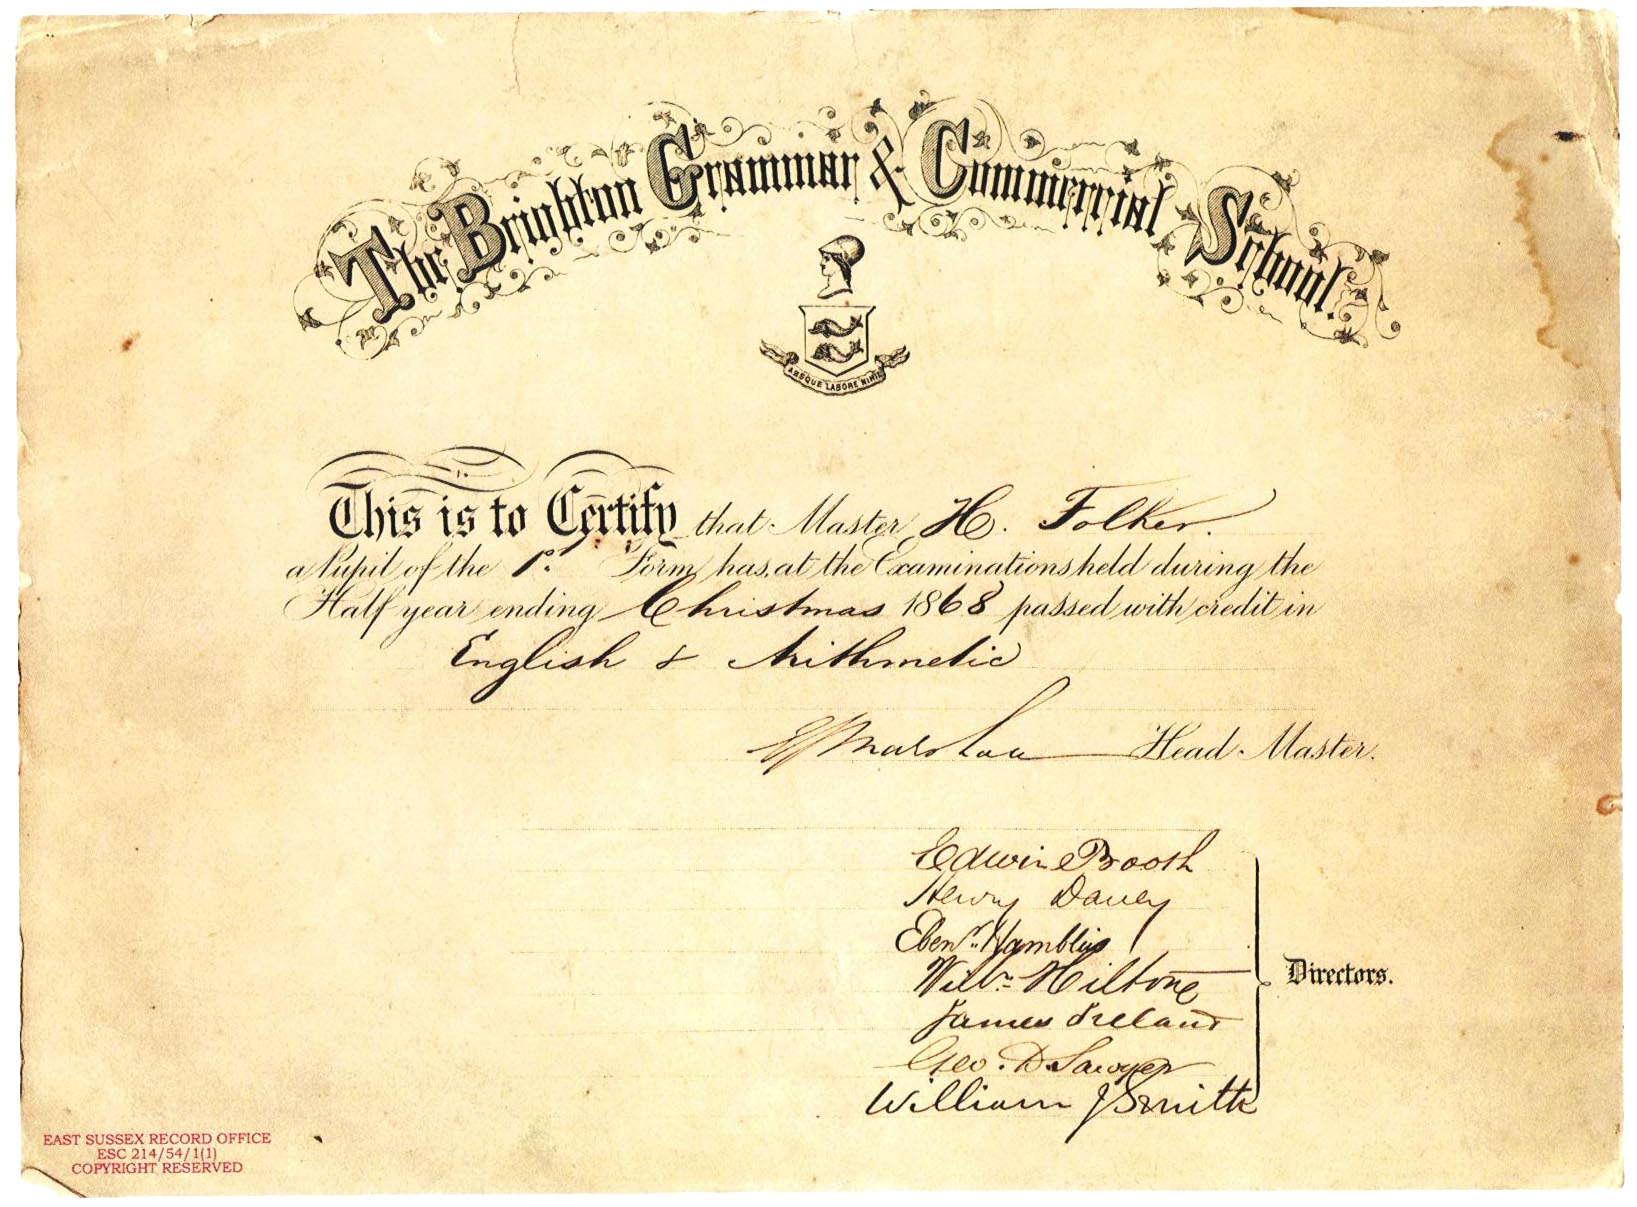 The Brighton Grammar & Commercial School.
ABSQUE LABORE NIHIL
This is to Certify that Master H. Folker.
a Pupil of the 1st Form has, at the Examinations held during the
Half year ending Christmas 1868 passed with credit in
English & Arithmetic
E J Marshall Head Master.
Edwin Booth
Henry Davey
Ebenr. Hamblin
Willm. Hilton
James Ireland
Directors.
Geo. D. Sawyer
William J Smith
EAST SUSSEX RECORD OFFICE
ESC 214/54/1(1)
COPYRIGHT RESERVED